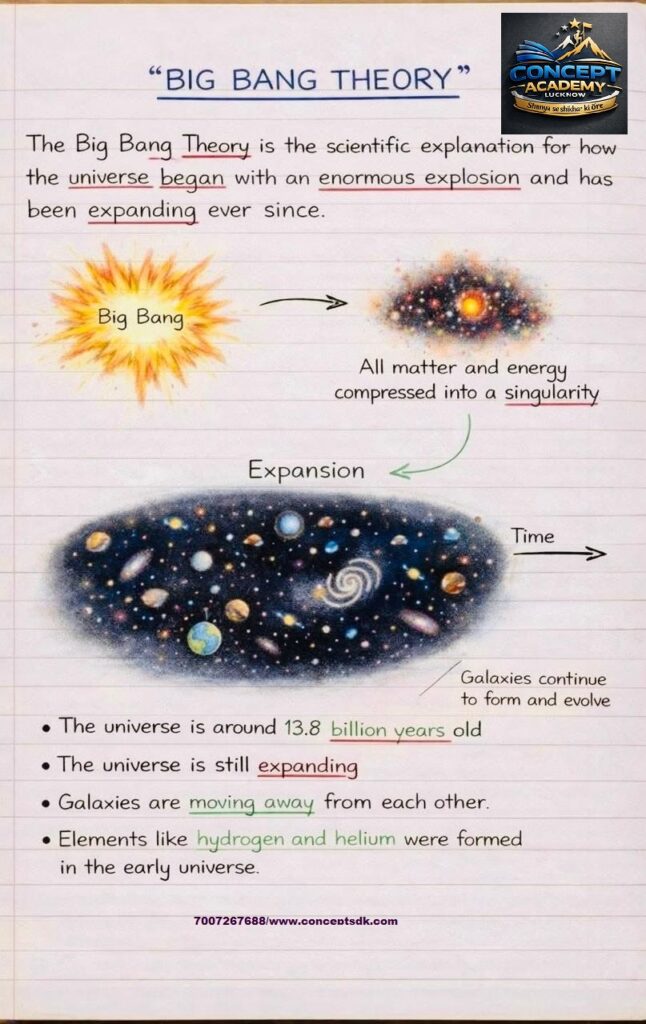 CONCEPT
ACADEMY
LUCKNOW
Shunya se shikhar ki Ore
"BIG BANG THEORY"
The Big Bang Theory is the scientific explanation for how
the universe began with an enormous explosion and has
been expanding ever since.
Big Bang
All matter and energy
compressed into a singularity
Expansion
Time
Galaxies continue
to form and evolve
• The universe is around 13.8 billion years old
• The universe is still expanding
• Galaxies are moving away from each other.
• Elements like hydrogen and helium were formed
in the early universe.
7007267688/www.conceptsdk.com